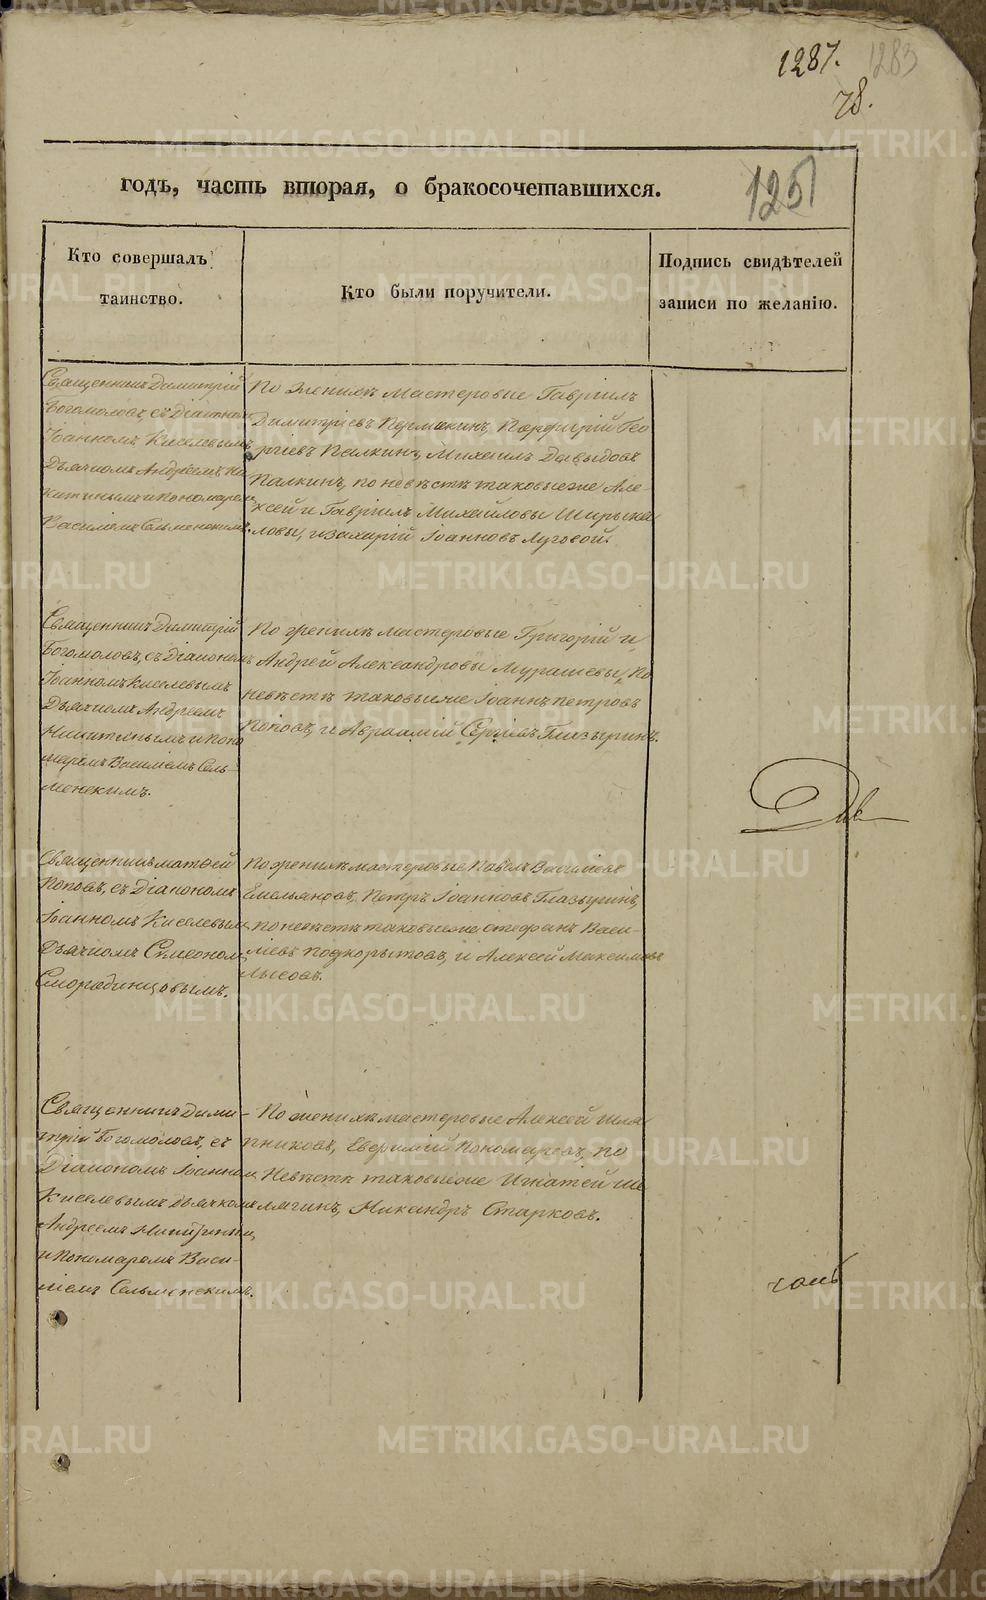 1287. 1283
78.
годъ, часть вторая, о бракосочетавшихся.
1251
Кто совершалъ
таинство.
Кто были поручители.
Подпись свидѣтелей
записи по желанію.
Священникъ Димитрій
Богомоловъ, съ Діакономъ
Іоанномъ Киселевымъ,
Дьячкомъ Андреемъ Ни-
китинымъ и пономаремъ
Василіемъ Сельменскимъ.
По женихѣ Мастеровые Гавріилъ
Димитріевъ Пермякинъ, Порфирій Гео-
ргіевъ Палкинъ, Михаилъ Давыдовъ
Палкинъ, по невѣстѣ таковые же Але-
ксей и Гавріилъ Михайловы Ширыка-
ловы, и Захарій Іоанновъ Луговой.
Священникъ Димитрій
Богомоловъ, съ Діакономъ
Іоанномъ Киселевымъ
Дьячкомъ Андреемъ
Никитинымъ и Поно
маремъ Василіемъ Сель-
менскимъ.
По женихѣ мастеровые Григорій и
Андрей Александровы Мурашевы, По
невѣстѣ таковые же Іоаннъ Петровъ
Поповъ, и Авраамій Сергіевъ Глазыринъ.
Священникъ Матѳей
Поповъ, съ Діакономъ
Іоанномъ Киселевымъ,
Дьячкомъ Симеономъ
Смородинцовымъ.
По женихѣ мастеровые Павелъ Васильевъ
Емельяновъ, Петръ Іоанновъ Глазыринъ,
по невѣстѣ таковые же Стефанъ Васи-
ліевъ Подкорытовъ, и Алексей Максимовъ
Лысовъ.
Священникъ Дими-
трій Богомоловъ, съ
Діакономъ Іоанномъ
Киселевымъ Дьячкомъ
Андреемъ Никитинымъ,
и Пономаремъ Васи-
ліемъ Сельменскимъ.
По женихѣ мастеровые Алексей Шля
пниковъ, Евфимій Пономаревъ, по
Невѣстѣ таковые же Игнатей Ше
лягинъ, Никандръ Старковъ.
METRIKI.GASO-URAL.RU